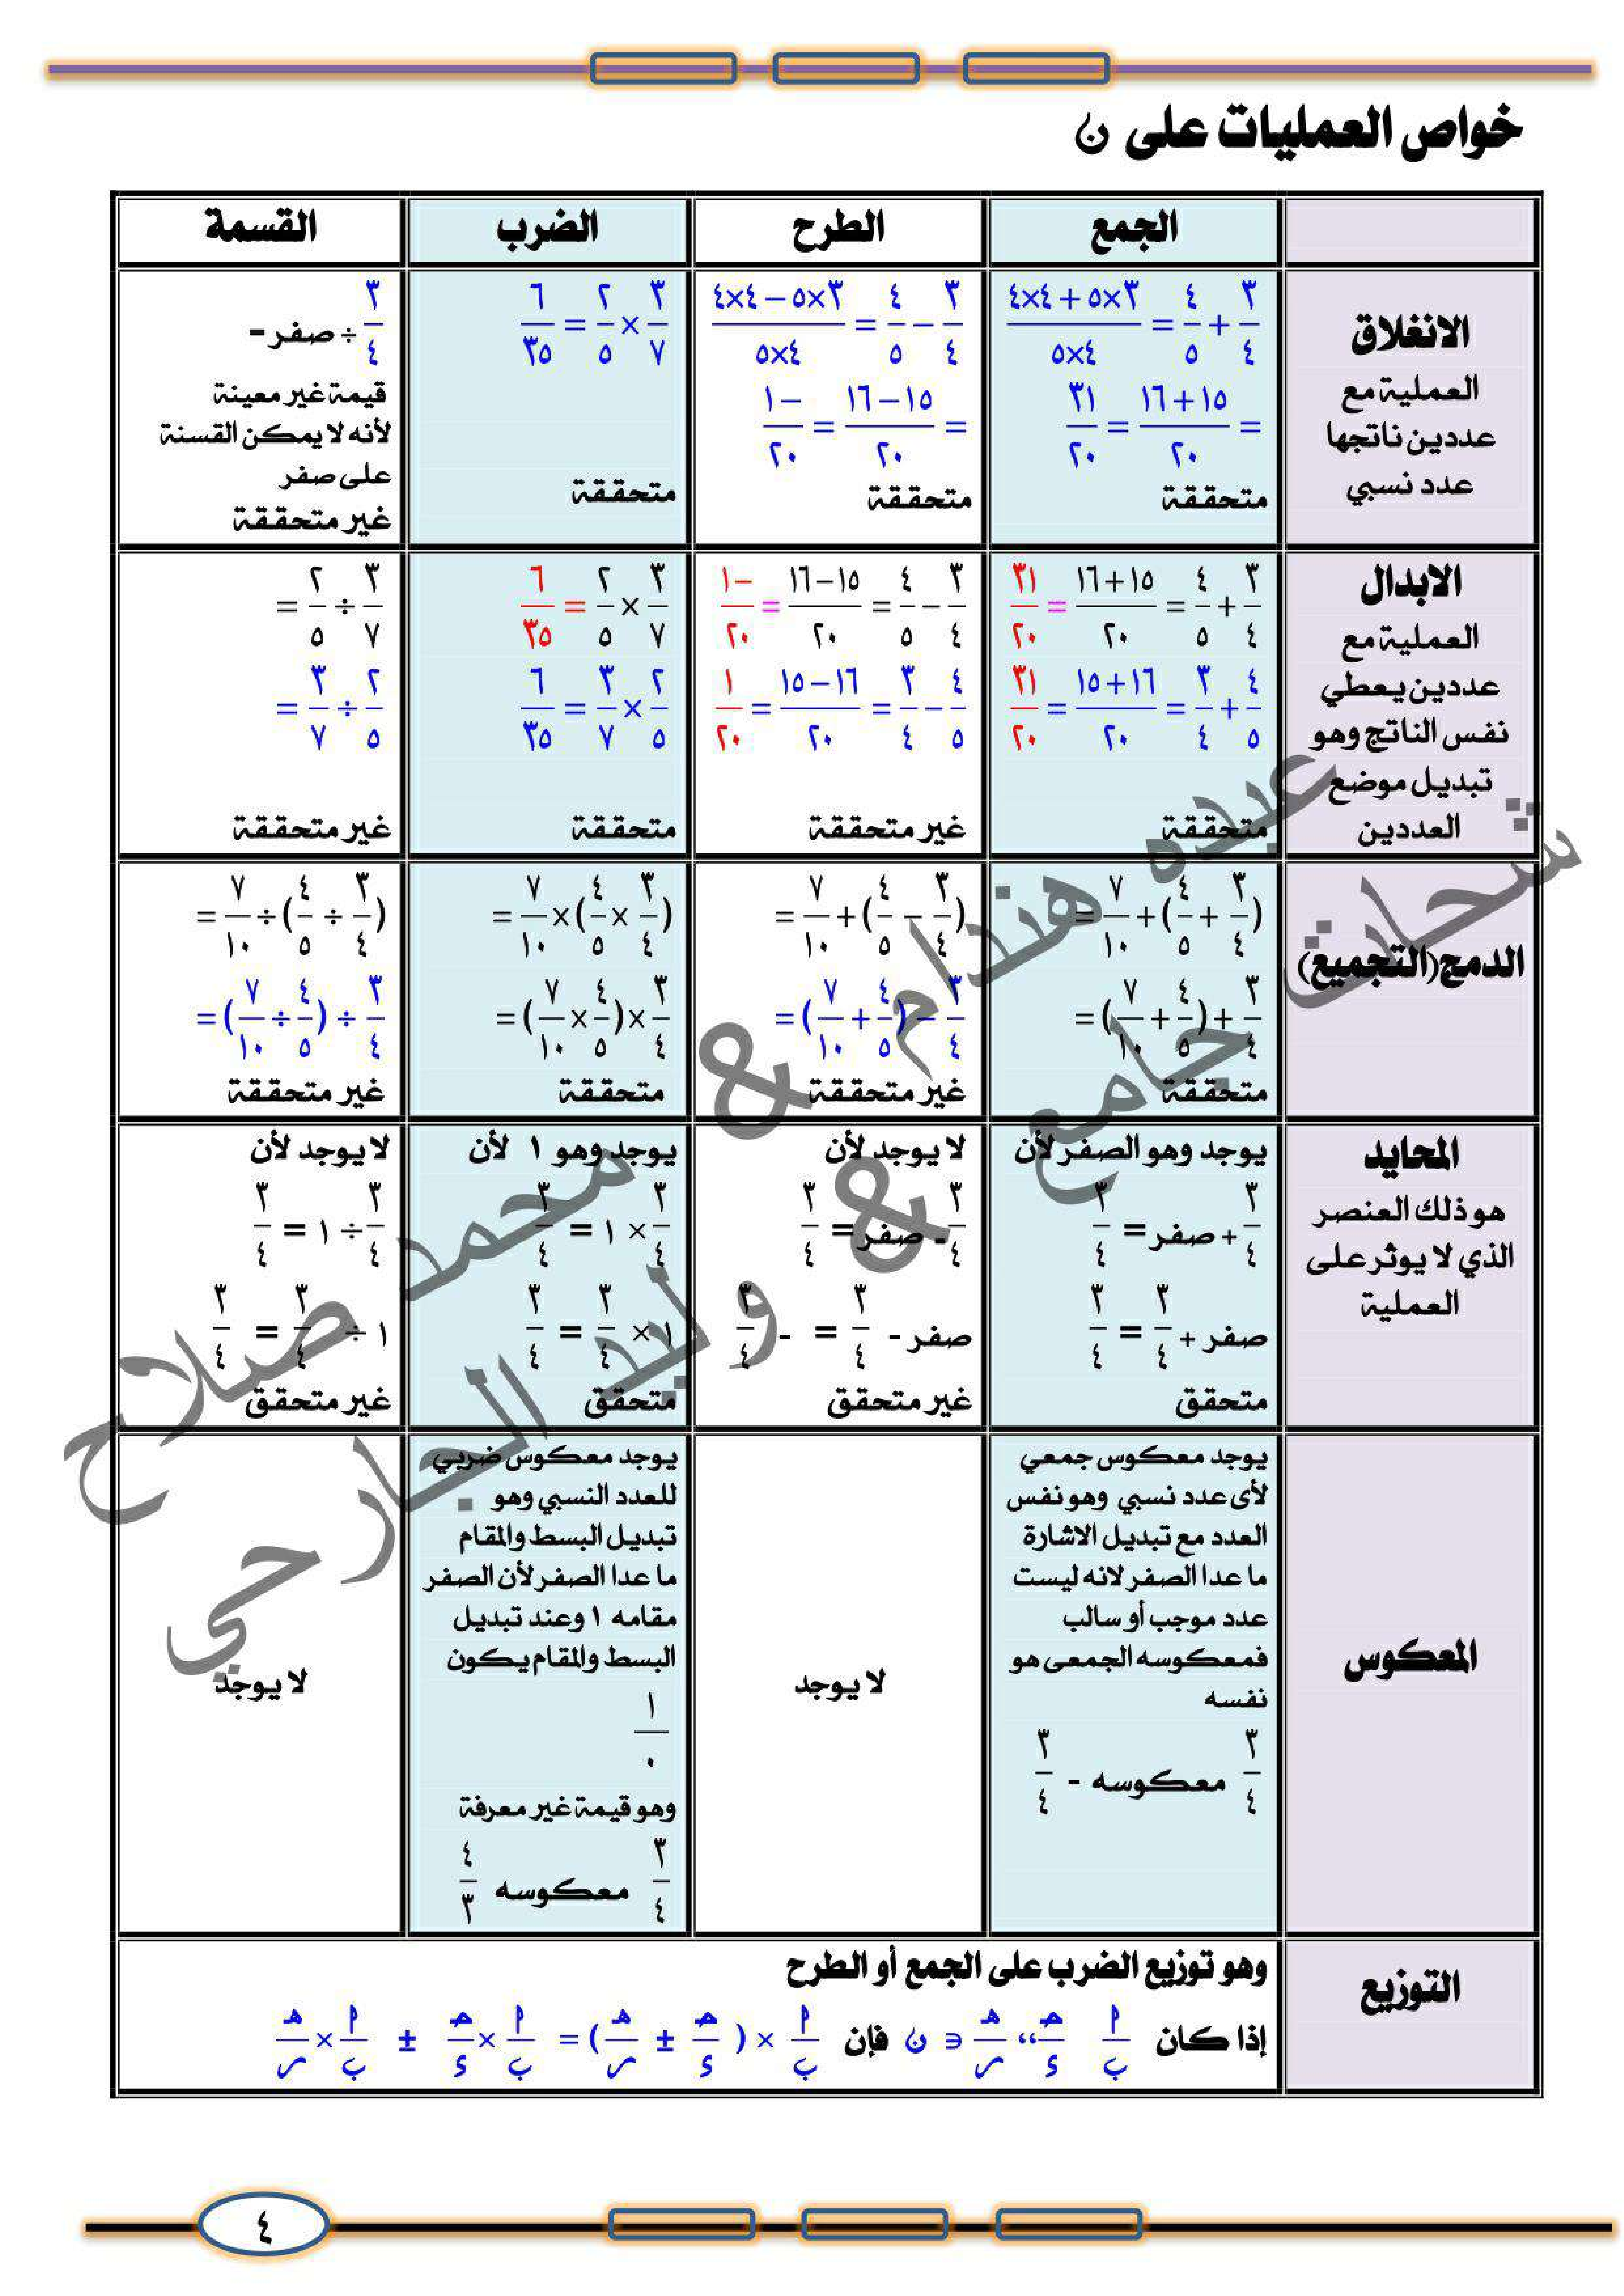 خواص العمليات على ن
الجمع الطرح الضرب القسمة
الانغلاق
العملية مع
عددين ناتجها
عدد نسبي
٣/٤ + ٤/٥ = (٣×٥ + ٤×٤)/(٤×٥)
= (١٥+١٦)/٢٠ = ٣١/٢٠
متحققة
٣/٤ − ٤/٥ = (٣×٥ − ٤×٤)/(٤×٥)
= (١٥−١٦)/٢٠ = −١/٢٠
متحققة
٣/٧ × ٢/٥ = ٦/٣٥
متحققة
٣/٤ ÷ صفر -
قيمة غير معينة
لأنه لا يمكن القسنة
على صفر
غير متحققة
الابدال
العملية مع
عددين يعطي
نفس الناتج وهو
تبديل موضع
العددين
٣/٤ + ٤/٥ = (١٥+١٦)/٢٠ = ٣١/٢٠
٤/٥ + ٣/٤ = (١٦+١٥)/٢٠ = ٣١/٢٠
متحققة
٣/٤ − ٤/٥ = (١٥−١٦)/٢٠ = −١/٢٠
٤/٥ − ٣/٤ = (١٦−١٥)/٢٠ = ١/٢٠
غير متحققة
٣/٧ × ٢/٥ = ٦/٣٥
٢/٥ × ٣/٧ = ٦/٣٥
متحققة
٣/٧ ÷ ٢/٥ =
٢/٥ ÷ ٣/٧ =
غير متحققة
الدمج(التجميع)
(٣/٤ + ٤/٥) + ٧/١٠ =
٣/٤ + (٤/٥ + ٧/١٠) =
متحققة
(٣/٤ − ٤/٥) + ٧/١٠ =
٣/٤ − (٤/٥ + ٧/١٠) =
غير متحققة
(٣/٤ × ٤/٥) × ٧/١٠ =
٣/٤ × (٤/٥ × ٧/١٠) =
متحققة
(٣/٤ ÷ ٤/٥) ÷ ٧/١٠ =
٣/٤ ÷ (٤/٥ ÷ ٧/١٠) =
غير متحققة
المحايد
هو ذلك العنصر
الذي لا يوثر على
العملية
يوجد وهو الصفر لأن
٣/٤ + صفر = ٣/٤
صفر + ٣/٤ = ٣/٤
متحقق
لا يوجد لأن
٣/٤ - صفر = ٣/٤
صفر - ٣/٤ = - ٣/٤
غير متحقق
يوجد وهو ١ لأن
٣/٤ × ١ = ٣/٤
١ × ٣/٤ = ٣/٤
متحقق
لا يوجد لأن
٣/٤ ÷ ١ = ٣/٤
١ ÷ ٣/٤ = ٣/٤
غير متحقق
المعكوس
يوجد معكوس جمعي
لأى عدد نسبي وهو نفس
العدد مع تبديل الاشارة
ما عدا الصفر لانه ليست
عدد موجب أو سالب
فمعكوسه الجمعى هو
نفسه
٣/٤ معكوسه - ٣/٤
لا يوجد
يوجد معكوس ضربي
للعدد النسبي وهو
تبديل البسط والمقام
ما عدا الصفر لأن الصفر
مقامه ١ وعند تبديل
البسط والمقام يكون
١/٠
وهو قيمة غير معرفة
٣/٤ معكوسه ٤/٣
لا يوجد
التوزيع
وهو توزيع الضرب على الجمع أو الطرح
إذا كان ا/ب ح/ء ،، هـ/ر ∈ ن فإن ا/ب × ( ح/ء ± هـ/ر ) = ا/ب × ح/ء ± ا/ب × هـ/ر
شحات جامع & وليد الجارحي
عبده هندام & محمد صلاح
٤